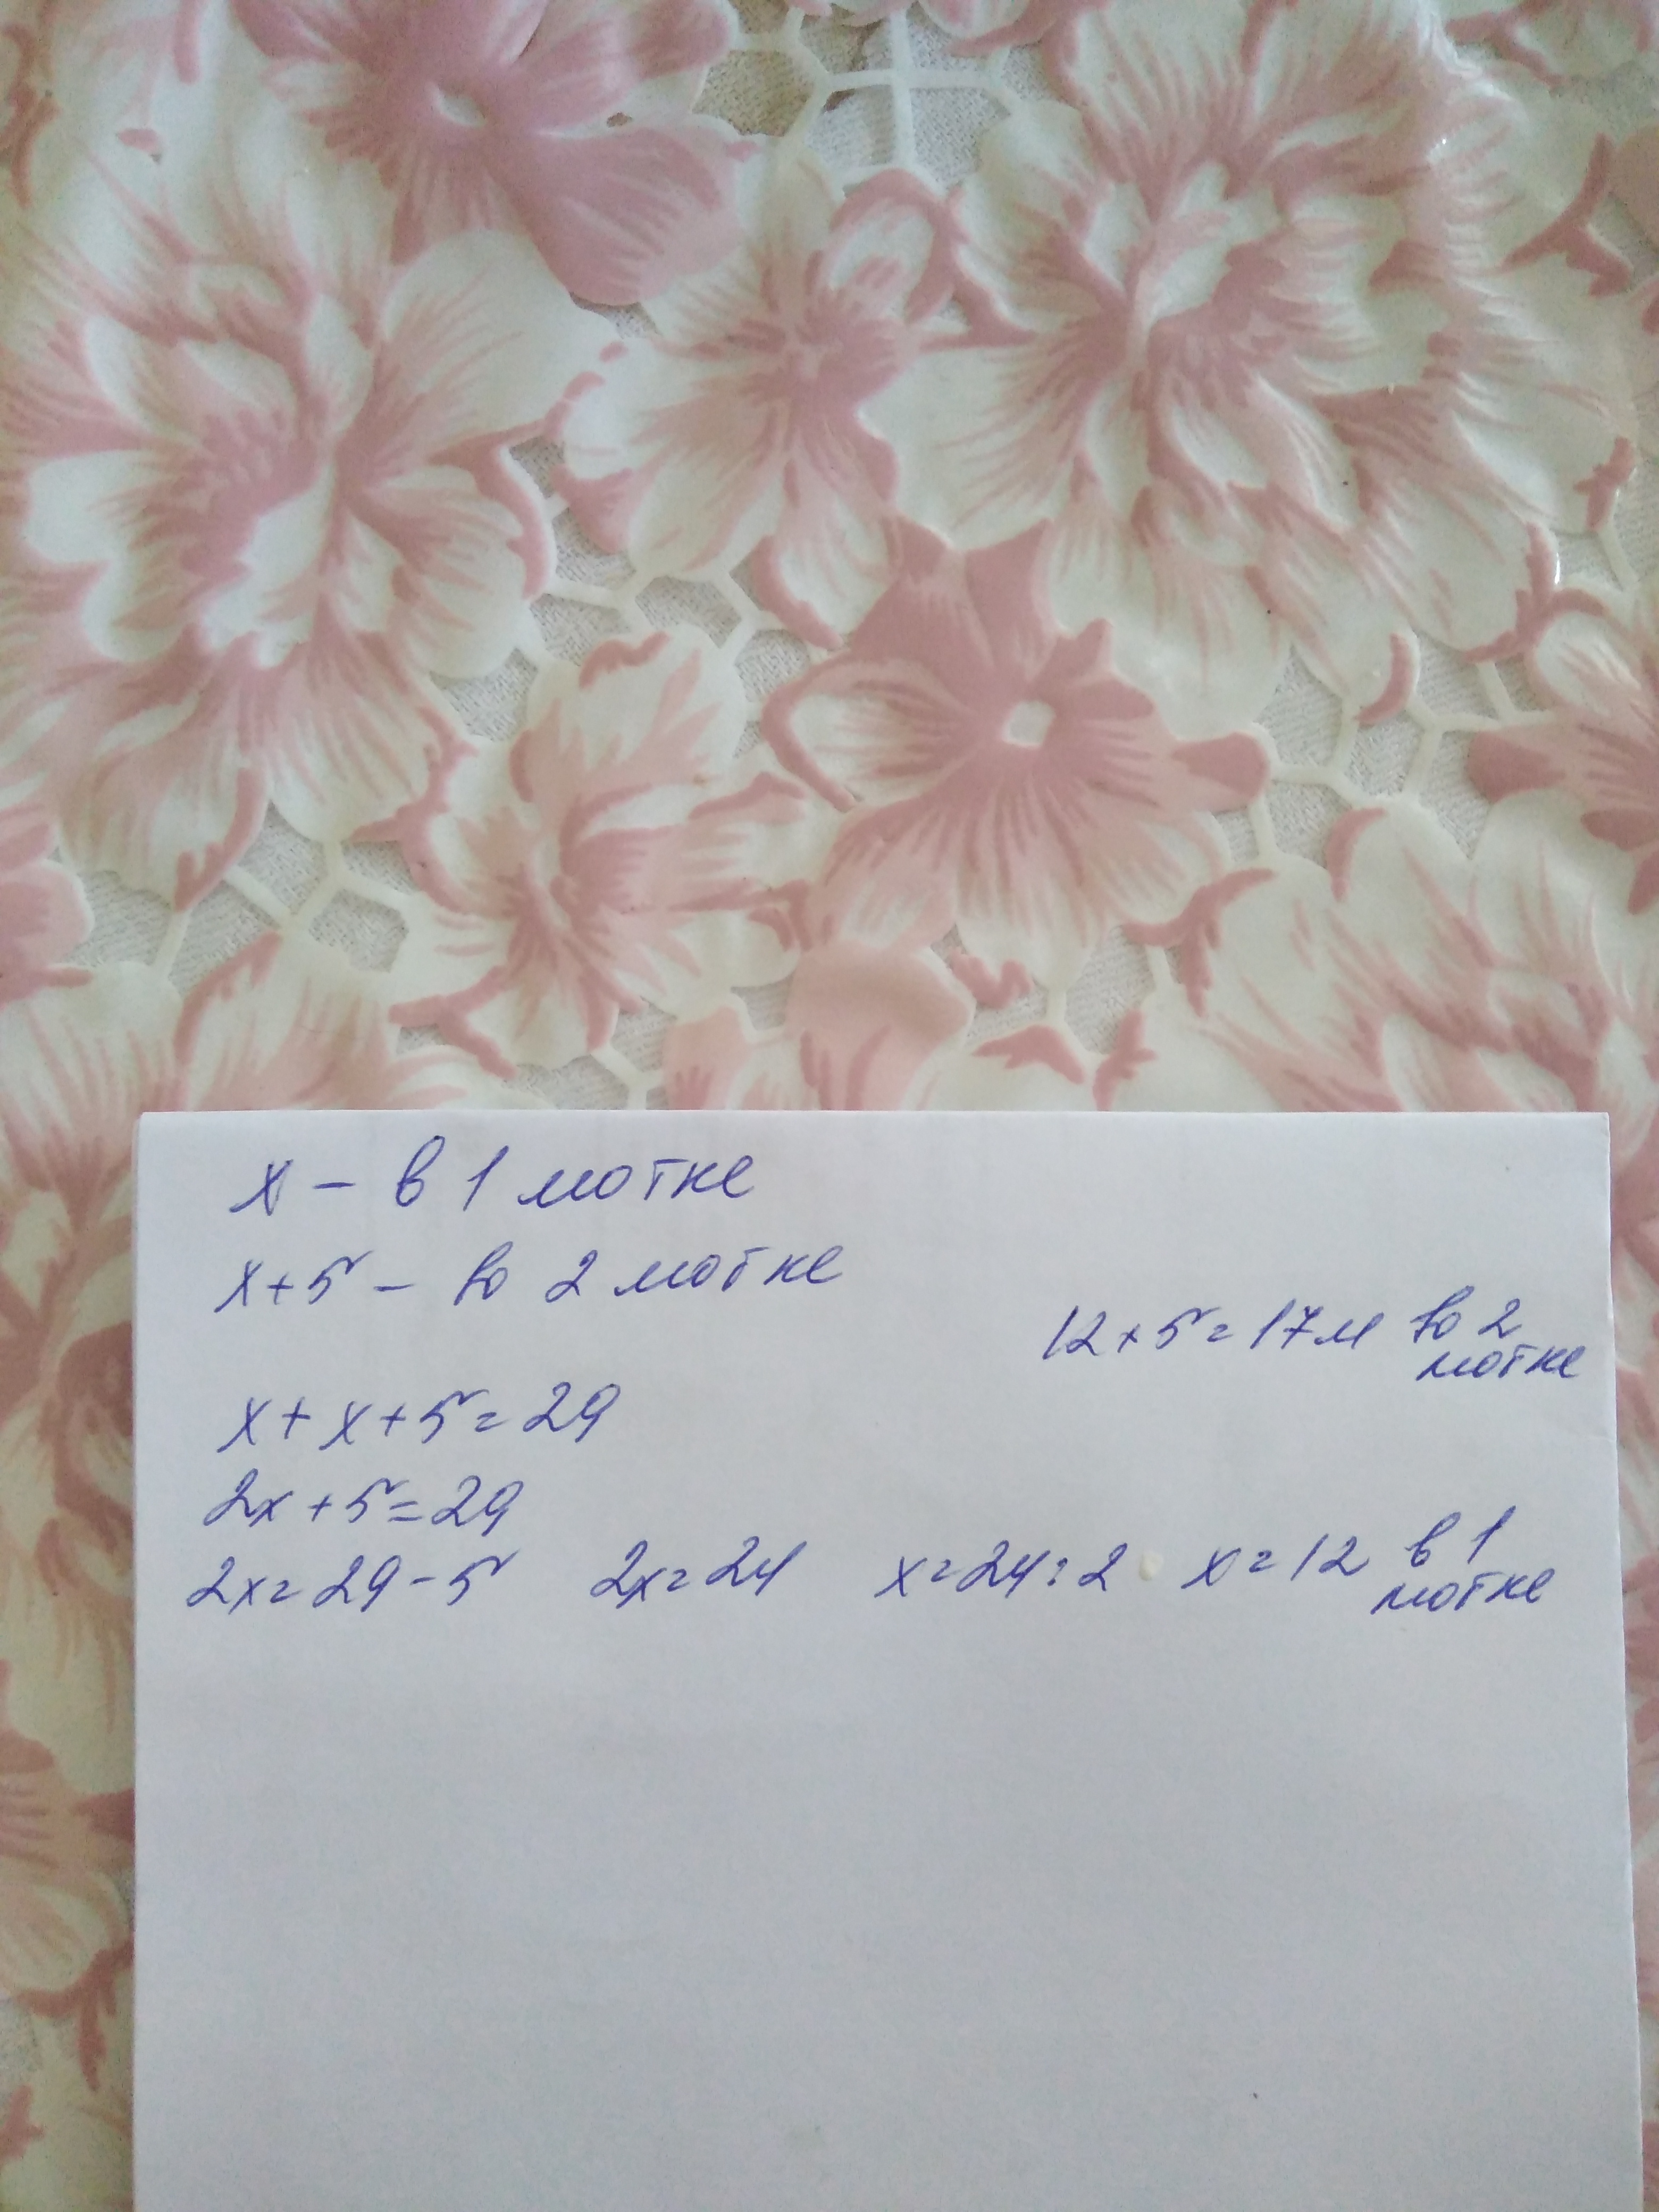 x - в 1 мотке
x+5 - во 2 мотке
12+5=17м во 2
мотке
x+x+5=29
2x+5=29
2x=29-5 2x=24 x=24:2 x=12 в 1
мотке